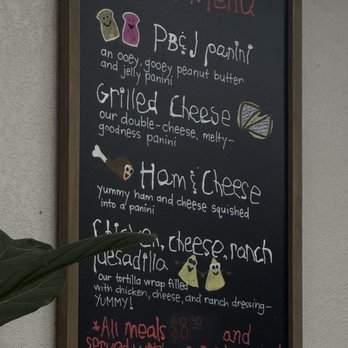 Menu
PB&J panini
an ooey, gooey peanut butter
and jelly panini
Grilled Cheese
our double-cheese, melty-
goodness panini
Ham & Cheese
yummy ham and cheese squished
into a panini
Chicken, cheese, ranch
quesadilla
our tortilla wrap filled
with chicken, cheese, and ranch dressing-
YUMMY!
*All meals and
served